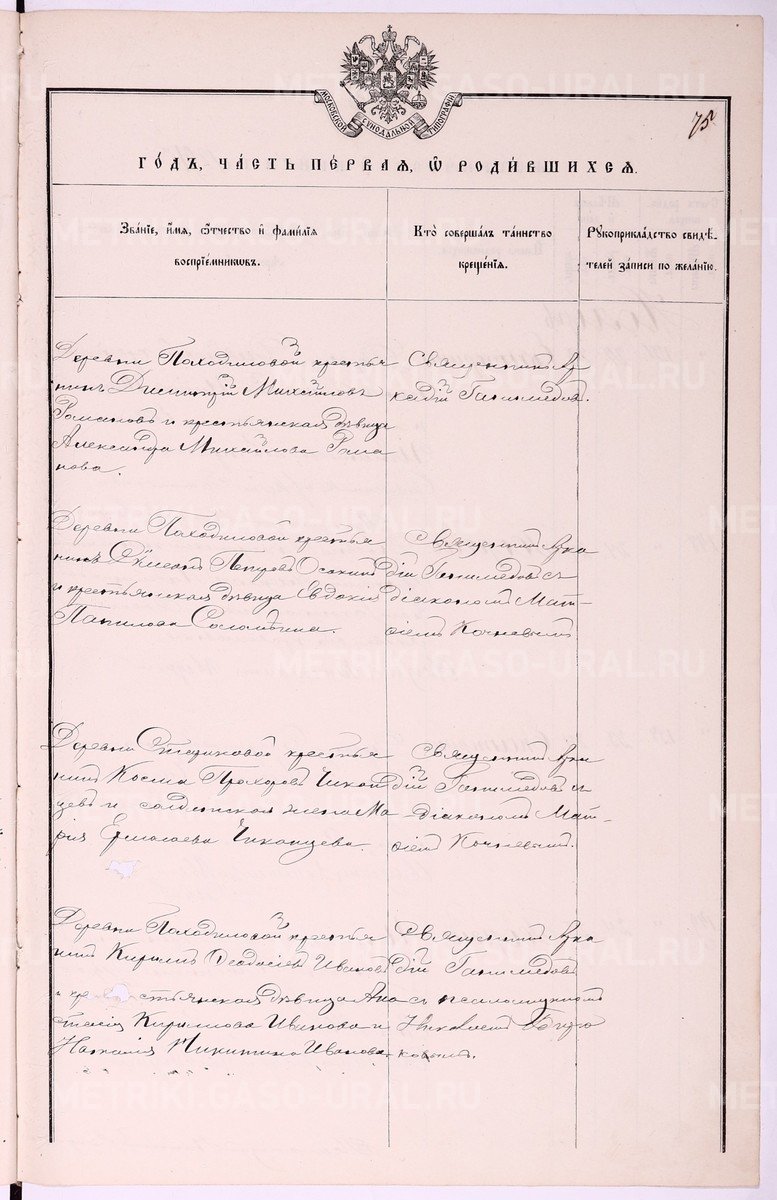 METRIKI.GASO-URAL.RU
МОСКОВСКОЙ СѴНОДАЛЬНОЙ ТИПОГРАФІИ
75
ГО́ДЪ, ЧА́СТЬ ПЕ́РВАЯ, Ѽ РОДИ́ВШИХСЯ.
Зва́нїе, и҆́мя, ѻ҆́тчество и҆ фами́лїя
воспрїе́мниковъ.
Кто̀ соверша́лъ та́инство
креще́нїя.
Рꙋкоприкла́дство свидѣ́-
телей за́писи по жела́нїю.
Деревни Походиловой крестья
нинъ Димитрій Михайловъ
Романовъ и крестьянская дѣвица
Александра Михайлова Рома
нова.
Священникъ Ар
кадій Ганимедовъ.
Деревни Походиловой крестья
нинъ Симеонъ Петровъ
и крестьянская дѣвица Евдокія
Священникъ Арка
дій Ганимедовъ съ
діакономъ Мат-
ѳіемъ Кочневымъ
Деревни крестья
нинъ Косма Прохоровъ
и солдатская жена Ма
рія Ермолаева
Священникъ Арка
дій Ганимедовъ съ
діакономъ Мат-
ѳіемъ Кочневымъ.
Деревни Походиловой крестья
нинъ Кириллъ Ѳеодосіевъ Ивановъ
и крестьянская дѣвица Ана
стасія Кириллова Иванова и
Наталія Никитина Иванова.
Священникъ Арка
дій Ганимедовъ
съ псаломщикомъ
Николаемъ
METRIKI.GASO-URAL.RU
METRIKI.GASO-URAL.RU